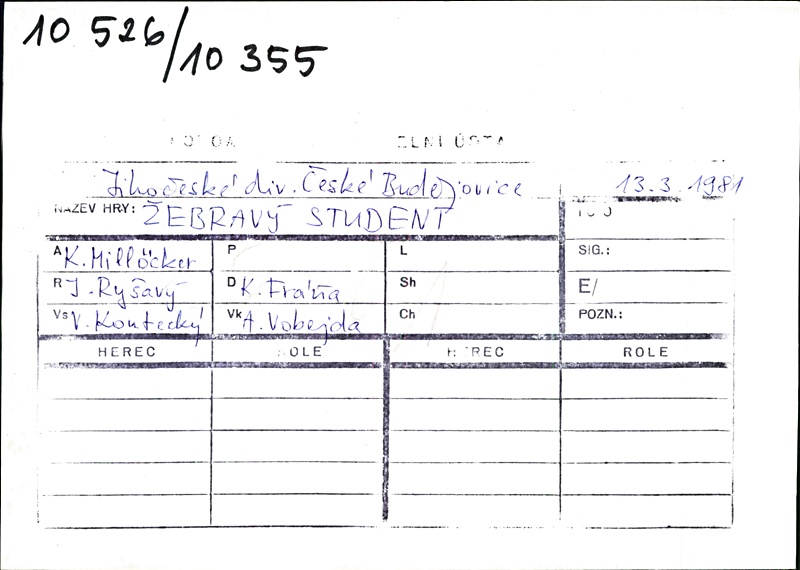 10 526/10 355
Jihočeské div. České Budějovice 13.3.1981
NÁZEV HRY: ŽEBRAVÝ STUDENT
A K. Millöcker P L SIG.:
R J. Ryšavý D K. Fráňa Sh E/
Vs V. Kontecký Vk A. Vobejda Ch POZN.:
HEREC ROLE HEREC ROLE